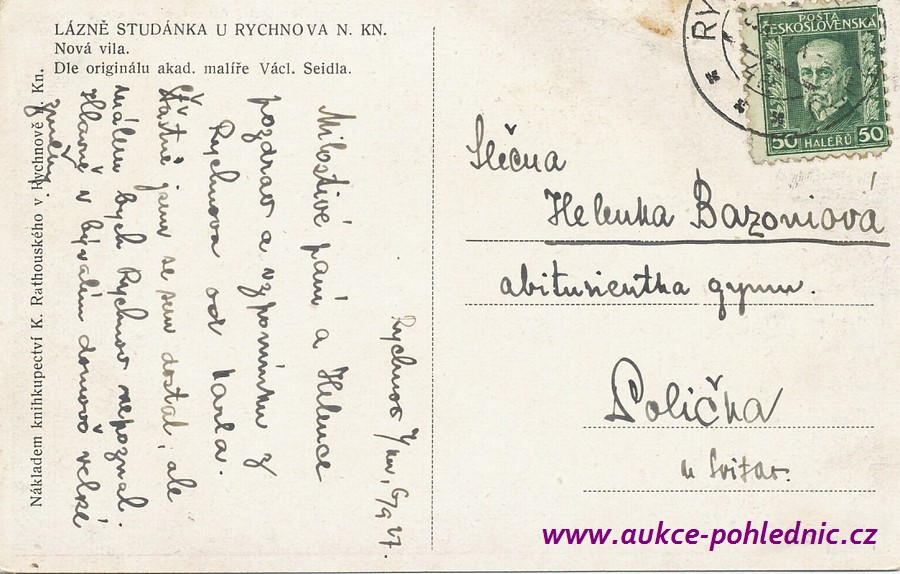 LÁZNĚ STUDÁNKA U RYCHNOVA N. KN.
Nová vila.
Dle originálu akad. malíře Václ. Seidla.
Nákladem knihkupectví K. Rathouského v Rychnově n. Kn.
Rychnov 6/9 27.
Milostivé paní a Helence
pozdrav a vzpomínku z
Rychnova od Karla.
Šťastně jsem se sem dostal, ale
málem bych Rychnov nepoznal.
Hlavně v bývalém domově velké
změny
RY
POŠTA
ČESKOSLOVENSKÁ
50 HALÉŘŮ 50
Slečna
Helenka Bazoniová
abiturientka gymn.
Polička
u Svitav.
www.aukce-pohlednic.cz